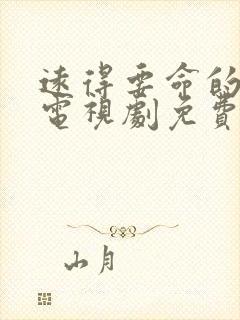 遠得要命的
電視劇免費
山月